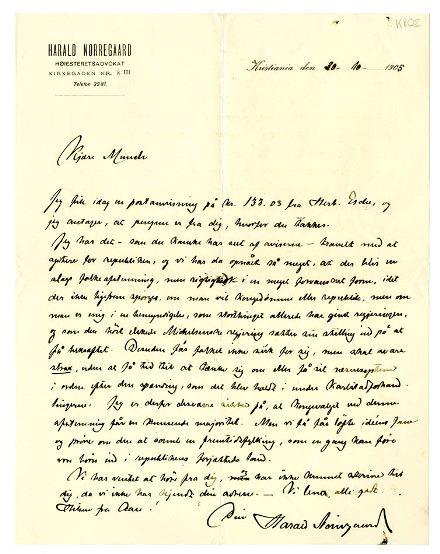 HARALD NØRREGAARD
HØIESTERETSADVOKAT
KIRKEGADEN NR. 8 III
Telefon 2287.
K 802
Kristiania den 30-10-1905
Kjære Munch
Jeg fik idag en postanvisning på kr. 133.03 fra Herb. Esche, og
jeg antager, at pengene er fra dig, hvorfor du takkes.
Jeg har det – som du kanske har set af aviserne – travelt med at
agitere for republiken, og vi har da opnået så meget, at der blir en
slags folkeafstemning, men rigtignok i en meget forvansket form, idet
der ikke hjelpen spørges, om man vil kongedømme eller republik, men om
man er enig i en bemyndigelse, som storthinget allerede har givet regjeringen,
og som den høit elskede Michelsenske regjering sætter sin stilling ind på at
få bekræftet. Desuden får folket ikke ro for sig, men skal svare
strax, uden at få tid til at tænke sig om eller få sit nervesystem
i orden efter den spænding, som det blev holdt i under Karlstadforhand-
lingerne. Jeg er derfor desværre sikker på, at kongevalget ved denne
afstemning får en knusende majoritet. Men vi få løfte ideens fane
og prøve om den at samle en fremtidsfylking, som en gang kan føre
vore børn ind i republikens forjættede land.
Vi har ventet at høre fra dig, har ikke kunnet skrive til
dig, da vi ikke har kjendt din adresse. – Vi lever alle godt.
Hilsen fra Aase!
Din Harald Nørregaard